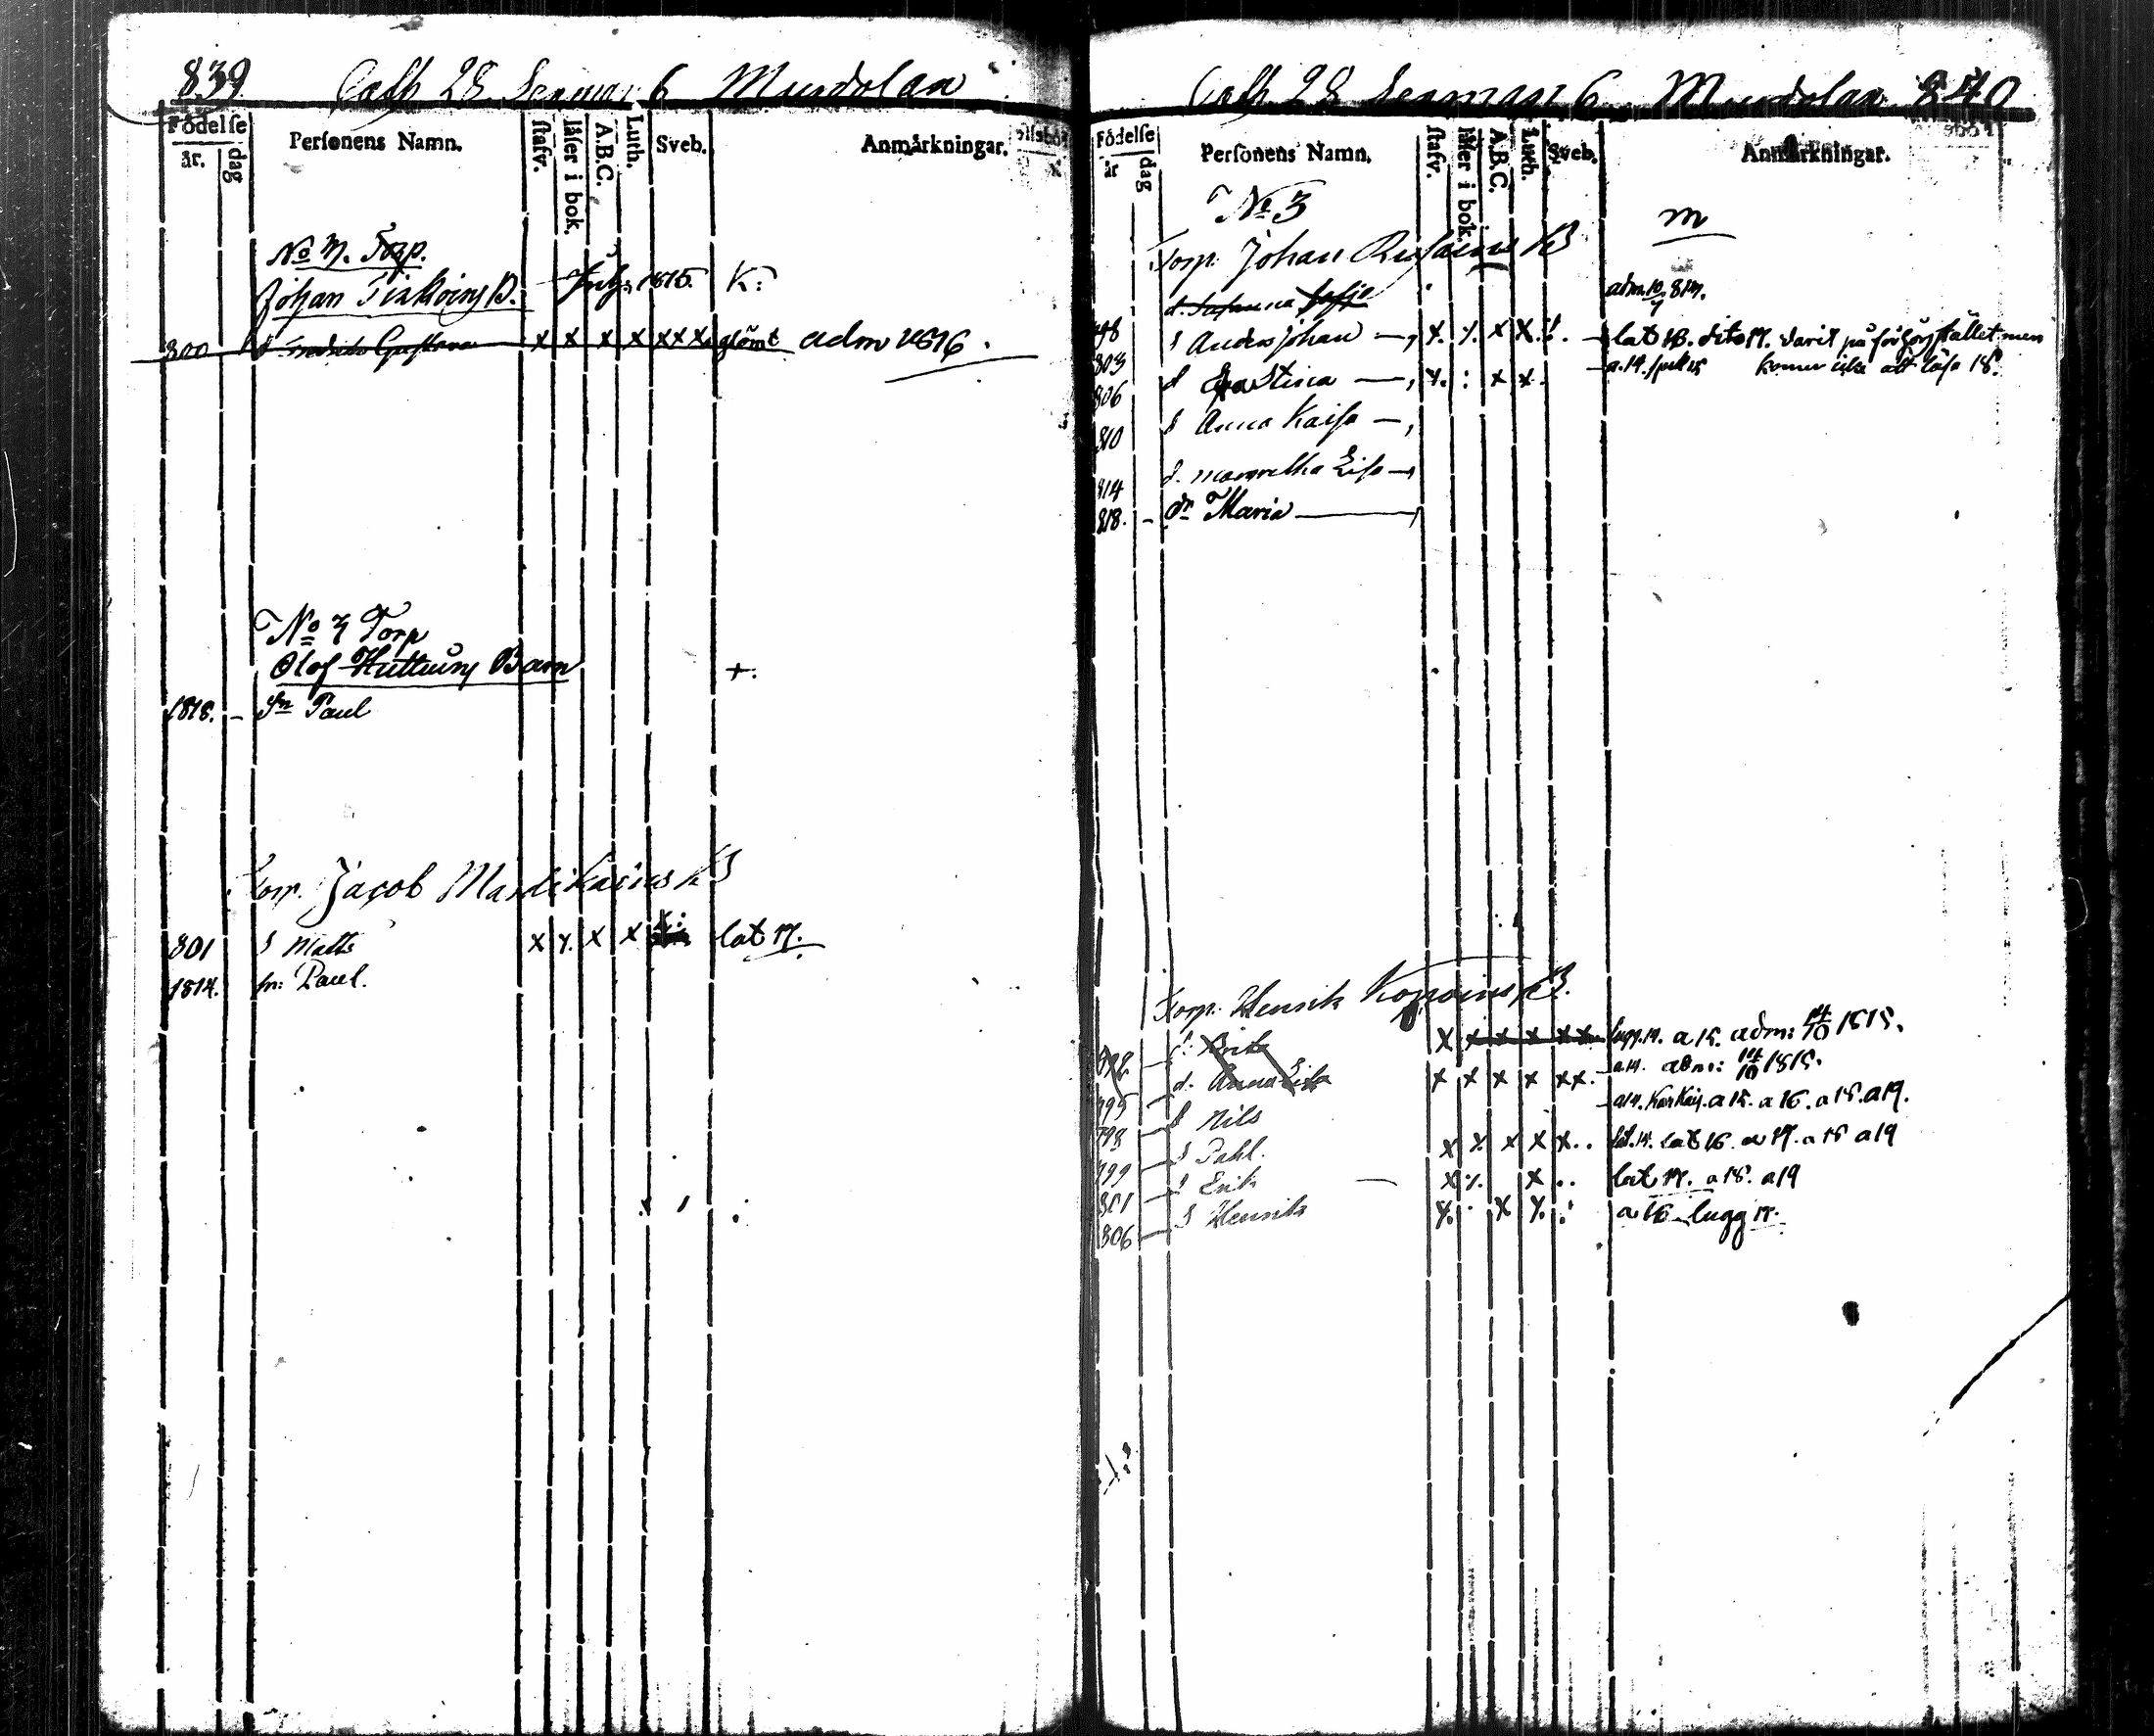 839 Cath 28 6 Mundolan
Födelse
år.
dag
Personens Namn.
stafv.
läser i bok.
A.B.C.
Luth.
Sveb.
Anmärkningar.
No 7. Torp.
Johan B. July 1815. K:
800 d Gustava x x x x x x x glömt adm 1816.
No 7 Torp
Olof Huttuins Barn +.
1818. – Sn Paul
Torp. Jacob Martikains B
801 S Matts x x. x x lat 17.
1814. sn: Paul.
Cath 28 6 Mundolan 840
Födelse
år
dag
Personens Namn.
stafv.
läser i bok.
A.B.C.
Luth.
Sveb.
Anmärkningar.
No 3
m
Torp. Johan B
d. Susanna Sofja adm. 10 817.
798 S Anders Johan x. x. x x. lat 16. dito 17. varit på men
803 d Stina x. : x x. komer icke att läsa 18.
806 d Anna Kaisa
810 d. Margretha Lisa
814
818. – dr Maria
Torp. Henrik B.
d: Brita x x x x x x lugg. 14. a 15. adm: 14/10 1815.
d. Anna Lisa x x x x x x. a 14. adm: 14/10 1815.
795 S Nils a 14. a 15. a 16. a 18. a 19.
798 S Pahl. x x x x x.. lat 16. a 17. a 18 a 19
799 S Erik x x. x .. lat 17. a 18. a 19
801 S Henrik x. . x x. : a 16 lugg 17.
806